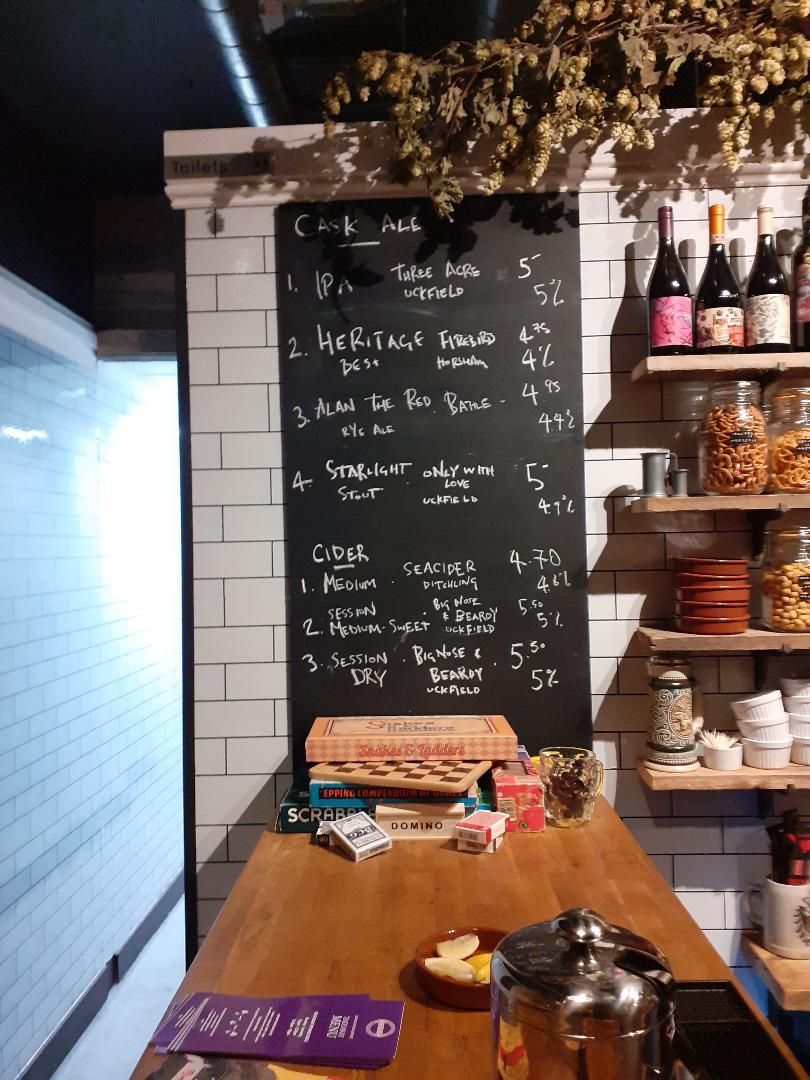 Toilets
CASK ALE
1. IPA THREE ACRE 5-
UCKFIELD 5%
2. HERITAGE FIREBIRD 4.75
BEST HORSHAM 4%
3. ALAN THE RED. BATTLE - 4.95
RYE ALE 4.4%
4. STARLIGHT ONLY WITH 5-
STOUT LOVE
UCKFIELD 4.9%
CIDER
1. MEDIUM . SEACIDER 4.70
DITCHLING 4.6%
2. SESSION . BIG NOSE 5.50
MEDIUM-SWEET & BEARDY 5%
UCKFIELD
3. SESSION . BIG NOSE & . 5.50
DRY BEARDY 5%
UCKFIELD
Snakes & Ladders
Snakes & Ladders
EPPING COMPENDIUM OF GAMES
SCRABBLE
DOMINO
MENU